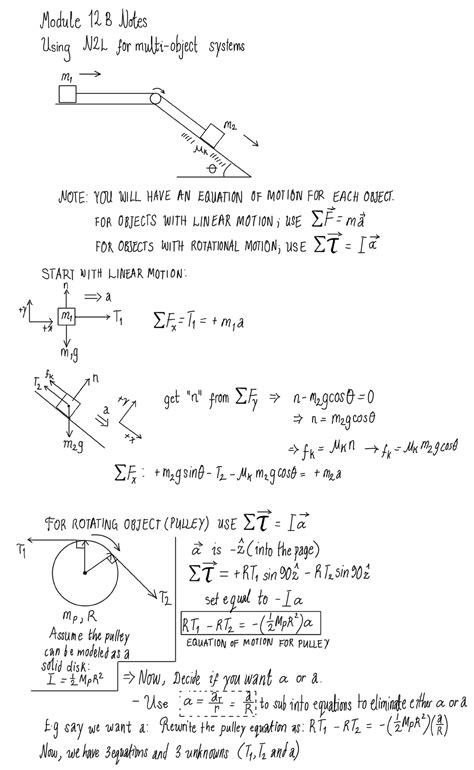 Module 12B Notes
Using N2L for multi-object systems
m₁
m₂
μₖ
θ
NOTE: YOU WILL HAVE AN EQUATION OF MOTION FOR EACH OBJECT.
FOR OBJECTS WITH LINEAR MOTION; USE ΣF⃗ = ma⃗
FOR OBJECTS WITH ROTATIONAL MOTION; USE Στ⃗ = Iα⃗
START WITH LINEAR MOTION:
n
⇒ a
+y
+x
m₁
T₁
m₁g
ΣFₓ = T₁ = +m₁a
T₂
fₖ
n
a
+y
+x
m₂g
get "n" from ΣFᵧ ⇒ n - m₂gcosθ = 0
⇒ n = m₂gcosθ
⇒ fₖ = μₖn → fₖ = μₖm₂gcosθ
ΣFₓ: +m₂gsinθ - T₂ - μₖm₂gcosθ = +m₂a
FOR ROTATING OBJECT (PULLEY) USE Στ⃗ = Iα⃗
T₁
T₂
mₚ, R
Assume the pulley
can be modeled as a
solid disk:
I = ½MₚR²
α⃗ is -ẑ (into the page)
Στ⃗ = +RT₁ sin90ẑ - RT₂sin90ẑ
set equal to -Iα
RT₁ - RT₂ = -(½MₚR²)α
EQUATION OF MOTION FOR PULLEY
⇒ Now, Decide if you want α or a.
- Use α = aₜ/r = a/R to sub into equations to eliminate either α or a
Eg say we want a: Rewrite the pulley equation as: RT₁ - RT₂ = -(½MₚR²)(a/R)
Now, we have 3 equations and 3 unknowns (T₁, T₂ and a)